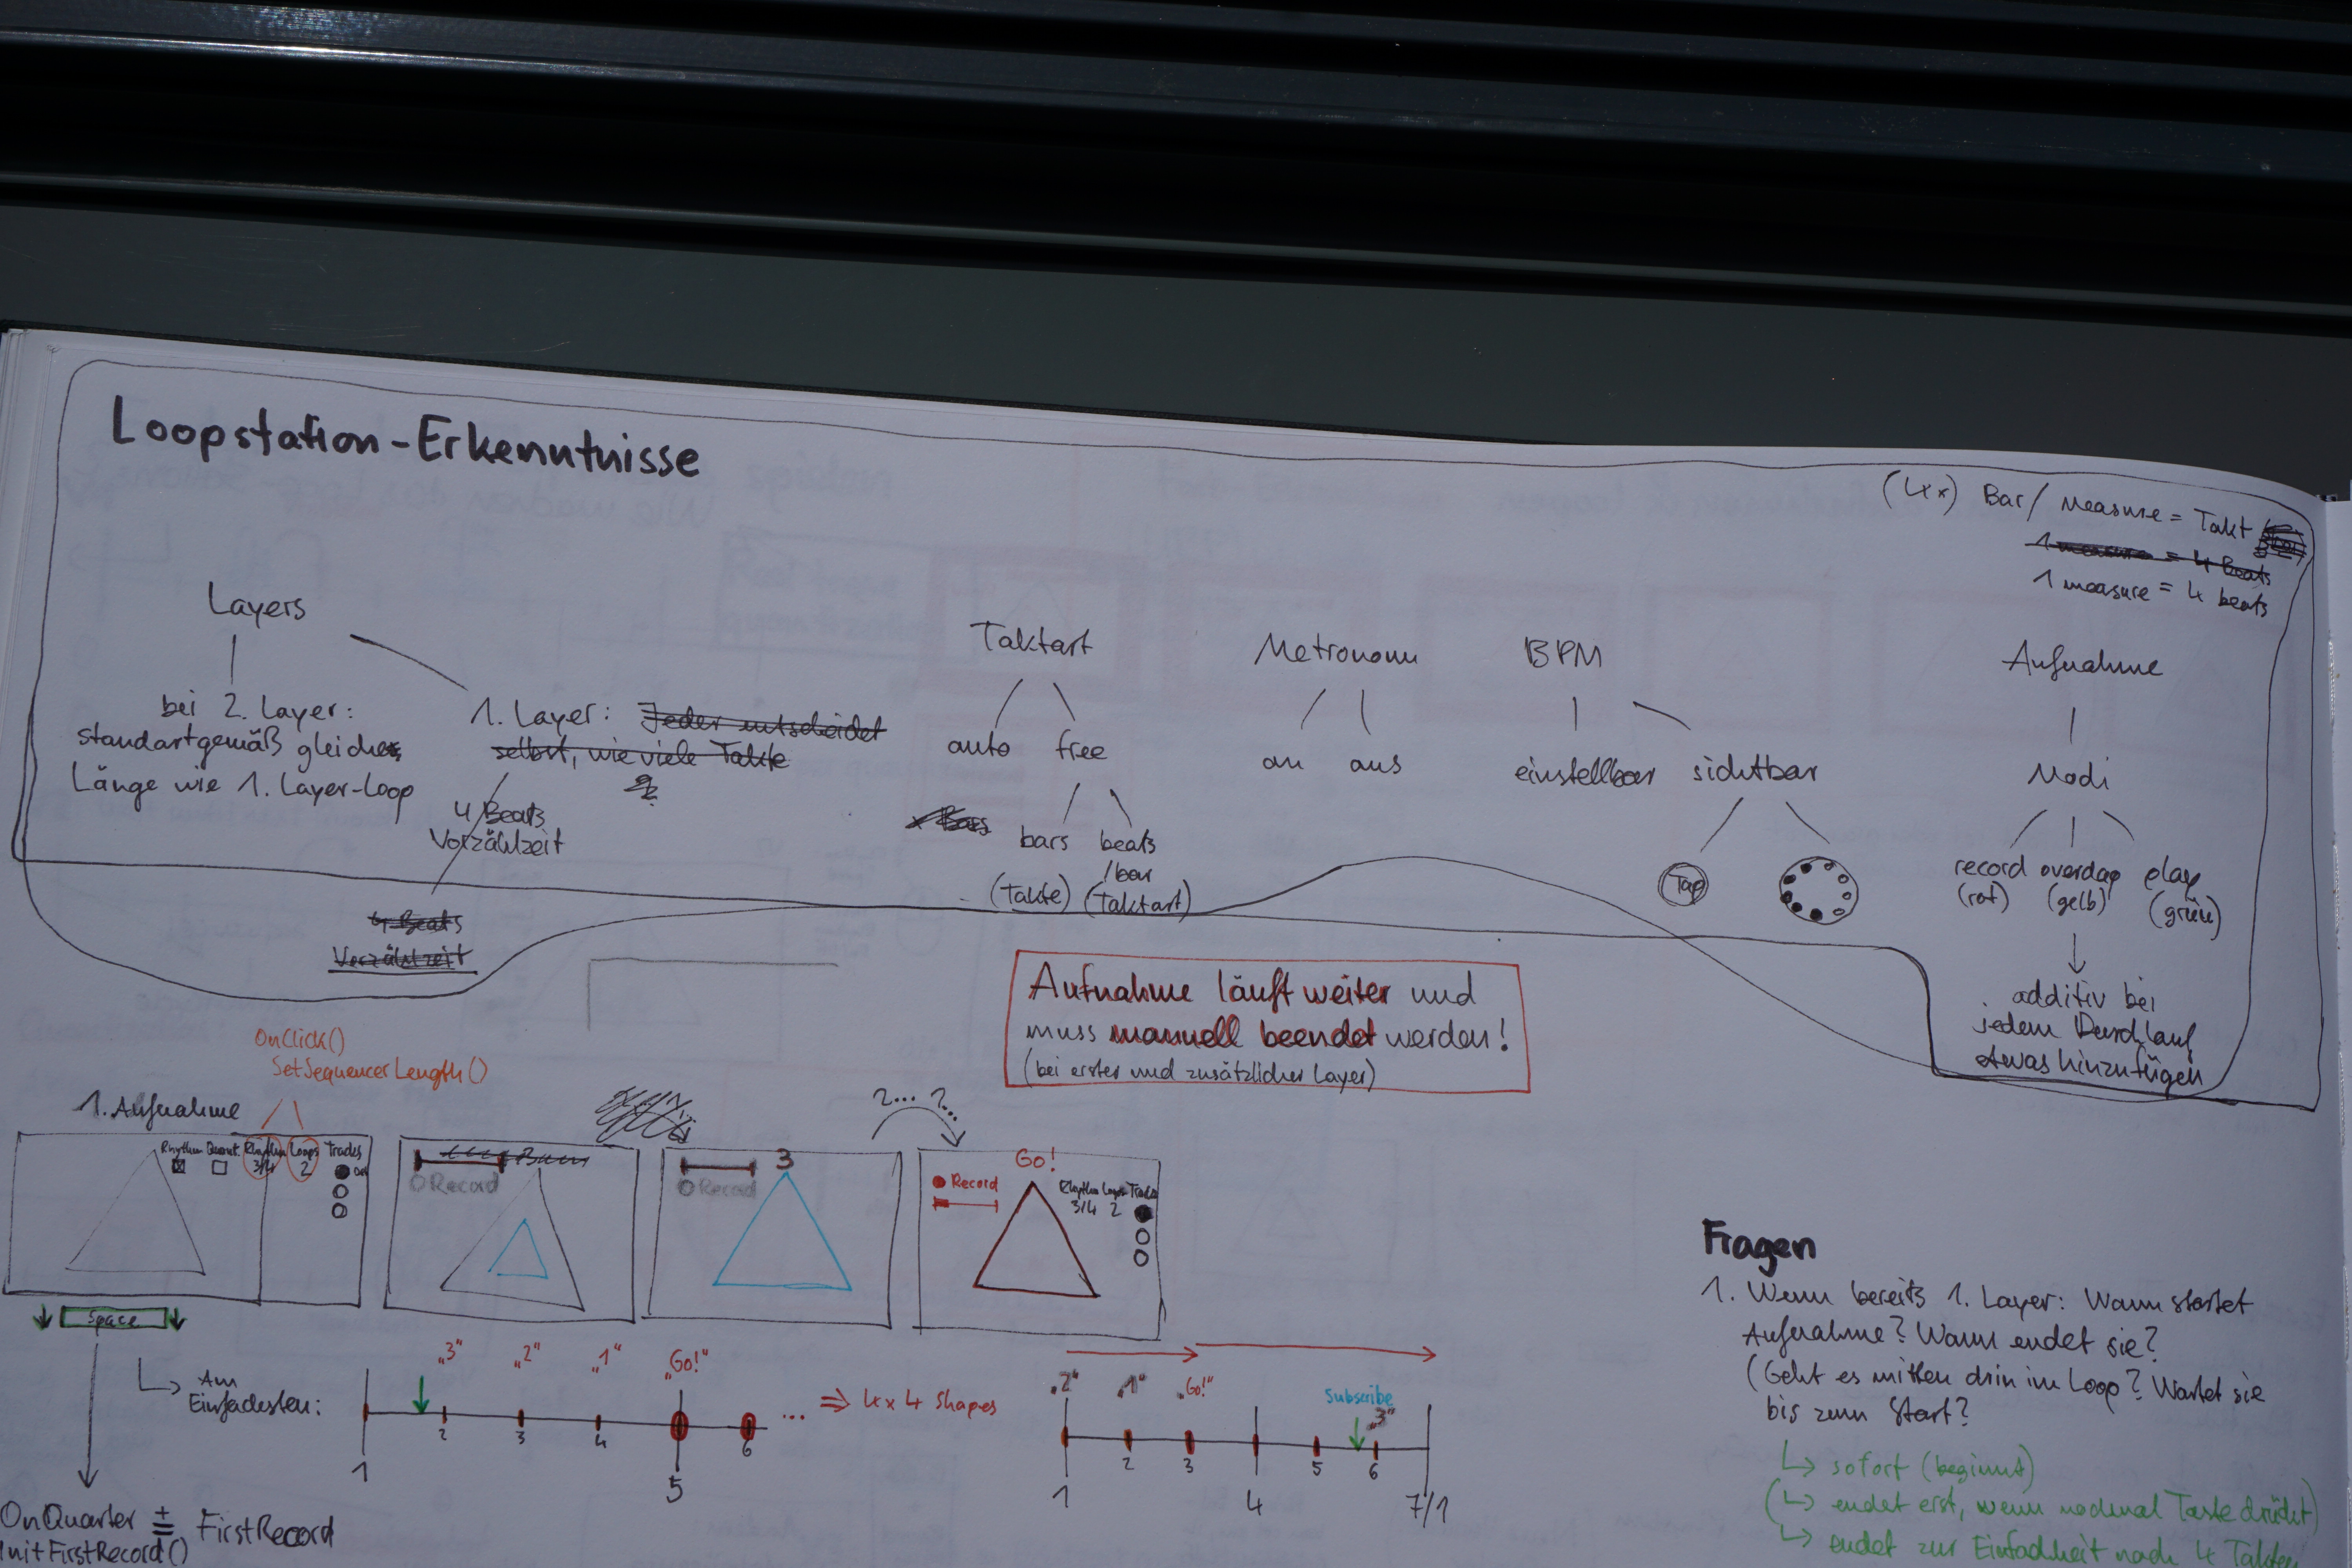 Loopstation-Erkenntnisse
(4x) Bar/ Measure = Takt
1 measure = 4 Beats
1 measure = 4 beats
Layers
bei 2. Layer:
standartgemäß gleiche
Länge wie 1. Layer-loop
1. Layer: Jeder entscheidet
selbst, wie viele Takte
4 Beats
Vorzählzeit
4 Beats
Vorzählzeit
Taktart
auto free
Bars
bars beats
/bar
(Takte) (Taktart)
Metronom
an aus
BPM
einstellbar sichtbar
Tap
Aufnahme
Modi
record overdap play
(rot) (gelb) (grün)
additiv bei
jedem Durchlauf
etwas hinzufügen
Aufnahme läuft weiter und
muss manuell beendet werden!
(bei erster und zusätzlicher Layer)
OnClick()
SetSequencerLength()
1. Aufnahme
Rhythm Quant. Rhythm Loops Tracks
3/4 2
Record
3
Record
2... 1...
Go!
Record
Rhythm Loops Tracks
3/4 2
Space
Am
Einfachsten:
„3“ „2“ „1“ „Go!“
1 2 3 4 5 6 ...
⇒ 4x4 Shapes
„2“ „1“ „Go!“
Subscribe
„3“
1 2 3 4 5 6 7/1
OnQuarter += FirstRecord
InitFirstRecord()
Fragen
1. Wenn bereits 1. Layer: Wann startet
Aufnahme? Wann endet sie?
(Geht es mitten drin im Loop? Wartet sie
bis zum Start?
↳ sofort (beginnt)
(↳ endet erst, wenn nochmal Taste drückt)
↳ endet zur Einfachheit nach 4 Takten